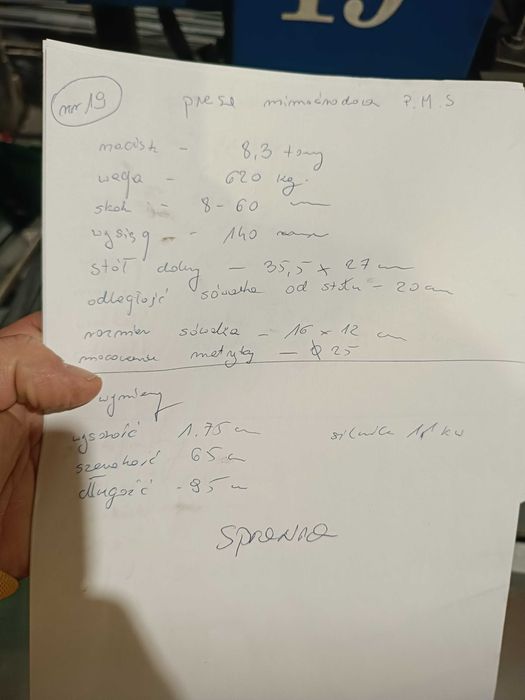 19
nr 19
prasa mimośrodowa P.M.S
nacisk - 8,3 tony
waga - 620 kg.
skok - 8-60 mm
wysięg - 140 mm
stół dolny - 35,5 x 27 cm
odległość suwaka od stołu - 20 cm
rozmiar suwaka - 16 x 12 cm
mocowanie matrycy - ϕ 25
wymiary
wysokość 1.75 m
silnik 1,1 kw
szerokość 65 cm
długość - 95 cm
SPRAWNA